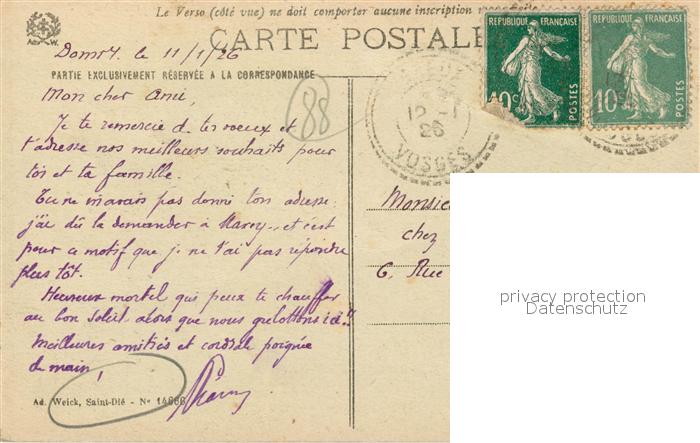 Le Verso (côté vue) ne doit comporter aucune inscription
CARTE POSTALE
AD. W.
Domr⁠y. le 11/1/26
PARTIE EXCLUSIVEMENT RÉSERVÉE A LA CORRESPONDANCE
Mon cher Ami,
88
Je te remercie d. tes voeux et
t'adresse nos meilleurs souhaits pour
toi et ta famille.
Tu ne m'avais pas donné ton adresse
j'ai dû la demander à et c'est
pour ce motif que je ne t'ai pas répondu
plus tôt.
Heureux mortel qui peux te chauffer
au bon soleil alors que nous grelottons ici !!
Meilleures amitiés et cordiale poignée
de main !
Ad. Weick, Saint-Dié - No 14666
REPUBLIQUE FRANÇAISE
10c
POSTES
REPUBLIQUE FRANÇAISE
10c
POSTES
12 - 1
26
VOSGES
Monsie
chez
6, Rue
privacy protection
Datenschutz